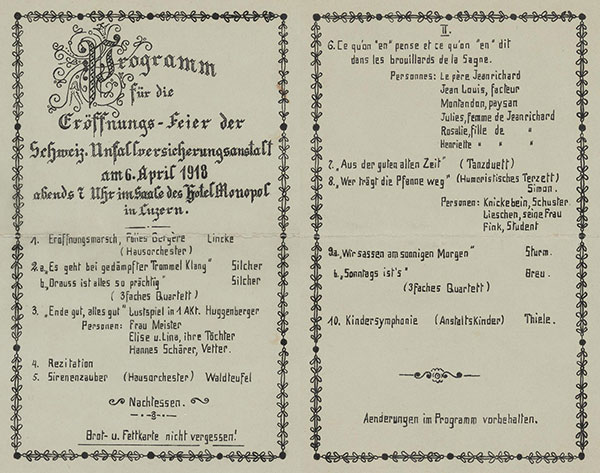 Programm
für die
Eröffnungs-Feier der
Schweiz. Unfallversicherungsanstalt
am 6. April 1918
abends 7 Uhr im Saale des Hotel Monopol
in Luzern.
1. Eröffnungsmarsch, Folies Bergère Lincke
(Hausorchester)
2. a „Es geht bei gedämpfter Trommel Klang" Silcher
b „Drauss ist alles so prächtig" Silcher
(3faches Quartett)
3. „Ende gut, alles gut" Lustspiel in 1 Akt. Huggenberger
Personen: Frau Meister
Elise u. Lina, ihre Töchter
Hannes Schärer, Vetter.
4. Rezitation
5. Sirenenzauber (Hausorchester) Waldteufel
Nachtessen.
Brot- u. Fettkarte nicht vergessen!
II.
6. Ce qu'on "en" pense et ce qu'on "en" dit
dans les brouillards de la Sagne.
Personnes: Le père Jeanrichard
Jean Louis, facteur
Montandon, paysan
Julies, femme de Jeanrichard
Rosalie, fille de "
Henriette " "
7. „Aus der guten alten Zeit" (Tanzduett)
8. „Wer trägt die Pfanne weg" (Humoristisches Terzett)
Simon.
Personen: Knickebein, Schuster
Lieschen, seine Frau
Fink, Student
9a „Wir sassen am sonnigen Morgen" Sturm.
b „Sonntags ist's" Breu.
(3faches Quartett)
10. Kindersymphonie (AnstaltsKinder) Thiele.
Aenderungen im Programm vorbehalten.